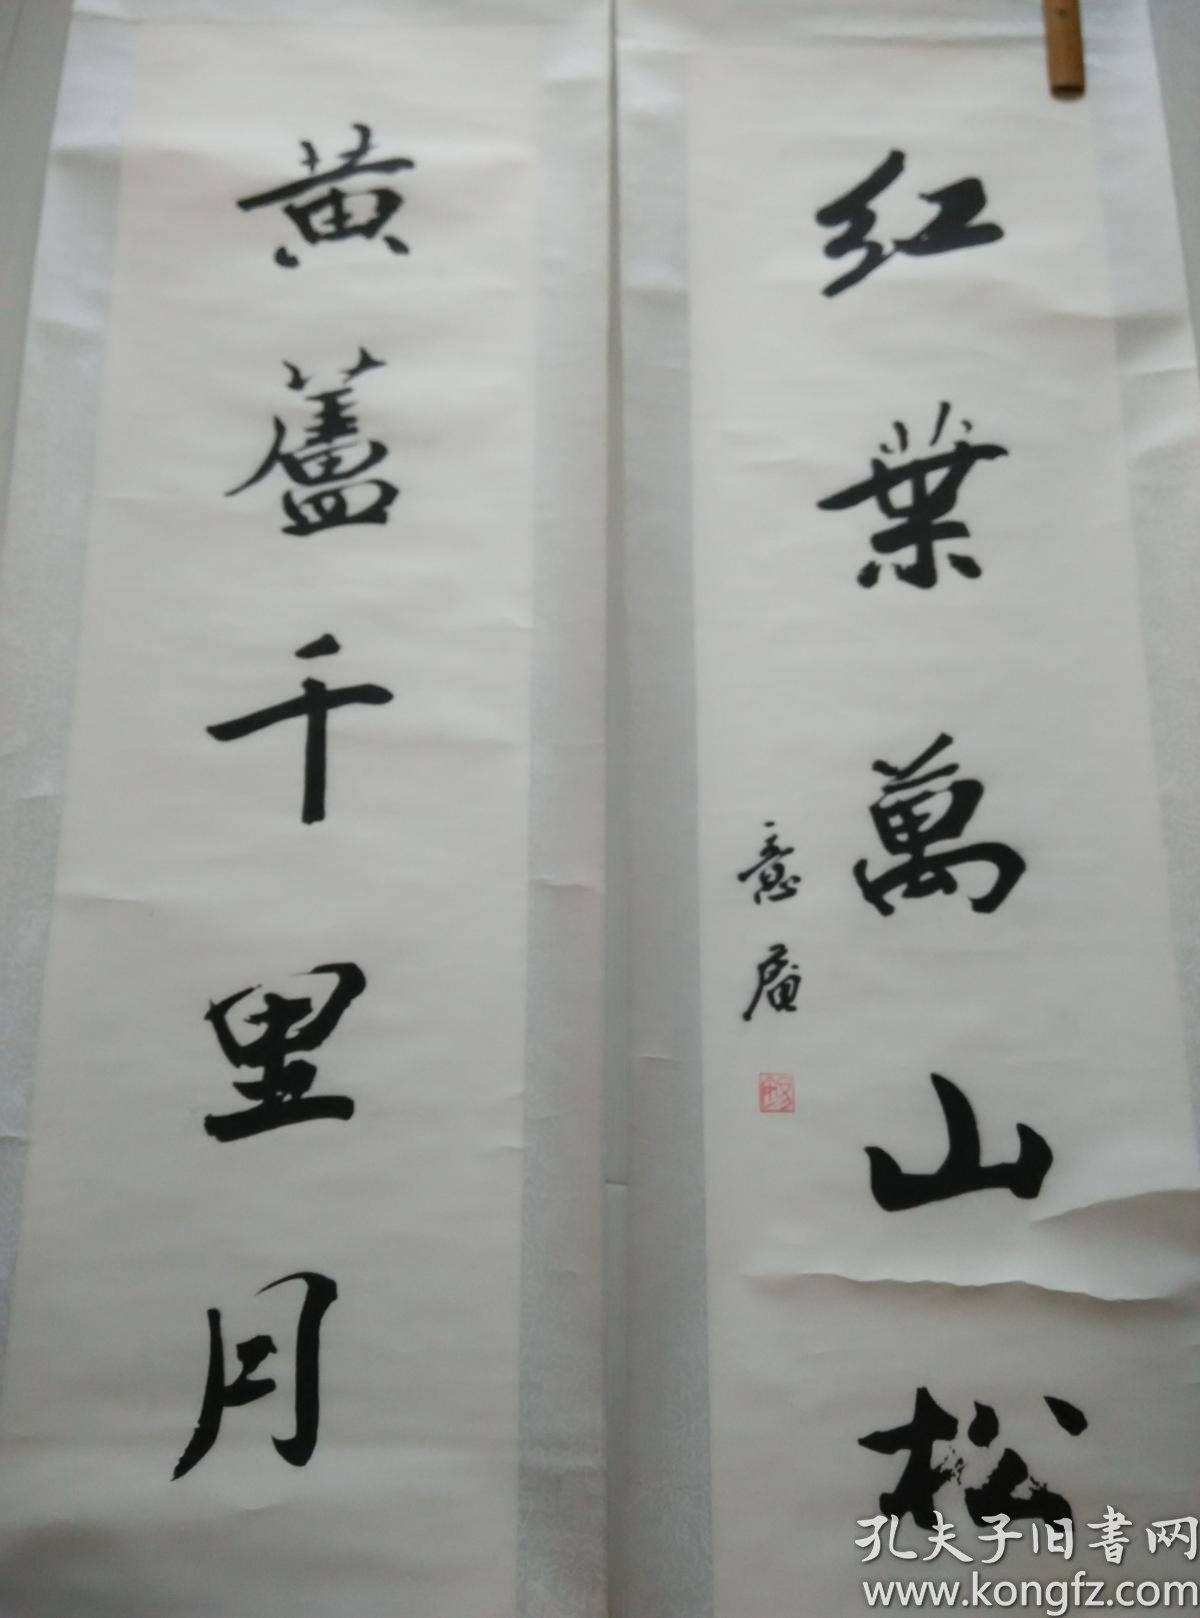 红葉萬山松
意庵
黄蘆千里月
孔夫子旧書网
www.kongfz.com